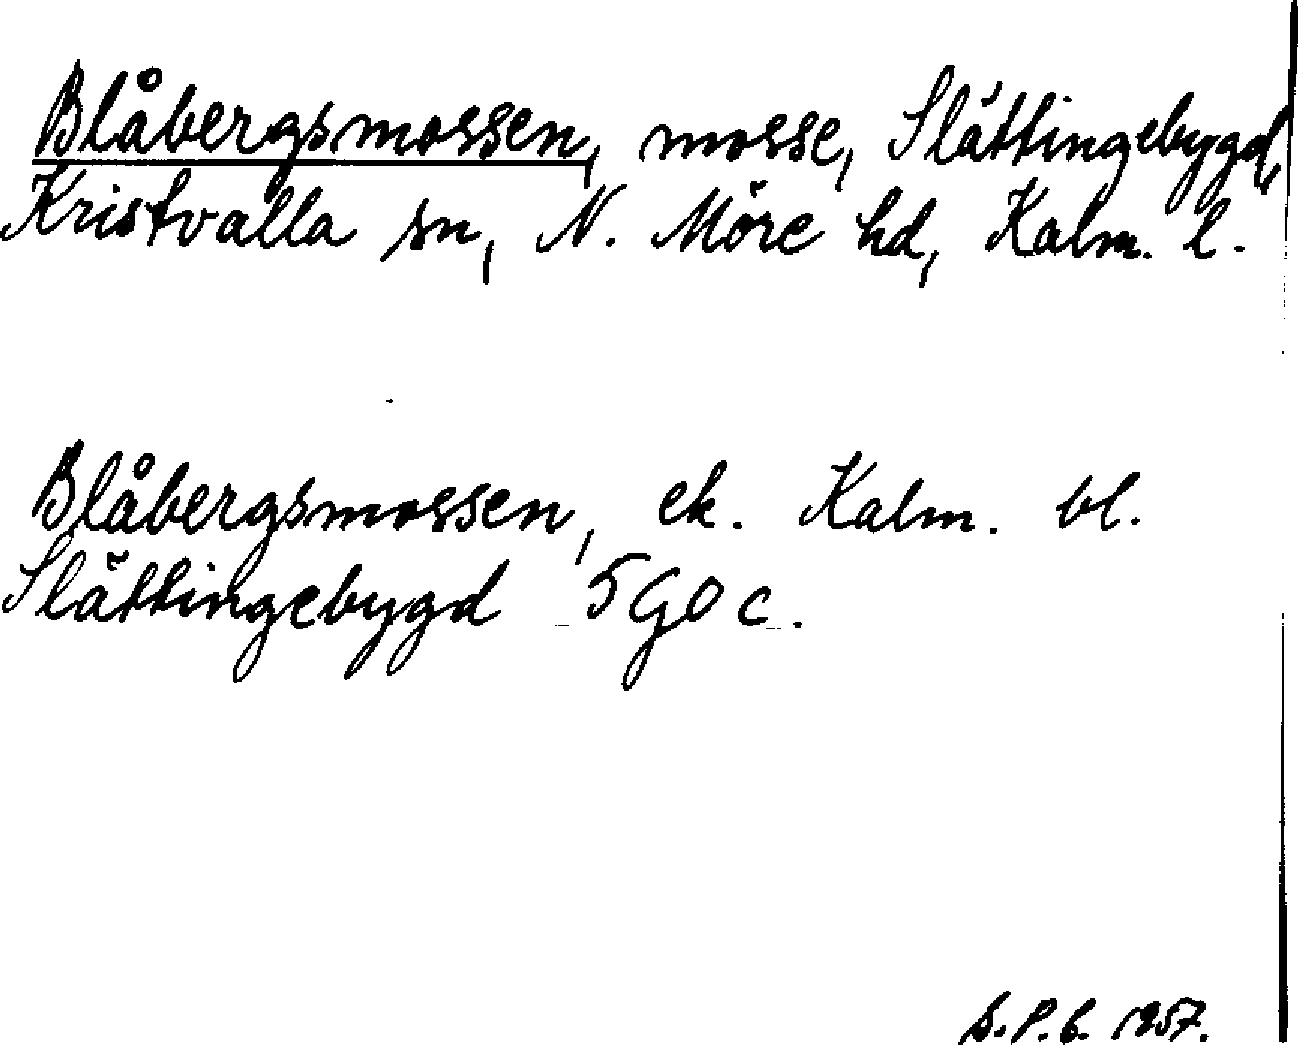 Blåbergsmossen, mosse, Slättingebygd,
Kristvalla sn, N. Möre hd, Kalm. l.
Blåbergsmossen, ek. Kalm. bl.
Slättingebygd 5 G 0 c.
S.P.B. 1957.